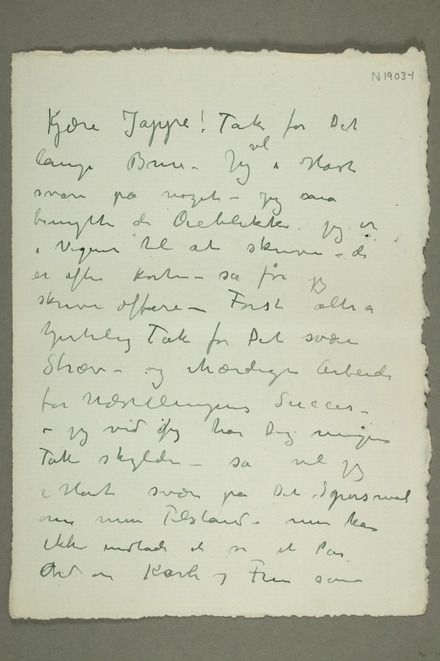 N 1903-1
Kjære Jappe! Tak for Det
lange Brev – Jeg vil i Hast
svare på noget – jeg må
benytte de Øieblikke jeg er
i Vigeur til at skrive – de
er ofte korte – så får jeg
skrive oftere – Først altså
hjertelig Tak for Det svære
Stræv – og Arbeide
for Udstillingens Succes –
– jeg ved jeg har Dig megen
Tak skyldig – så vil jeg
i Hast svare på Det Spørsmål
om min Tilstand – men kan
ikke undlade et Par
Ord om Kavli og Fru som